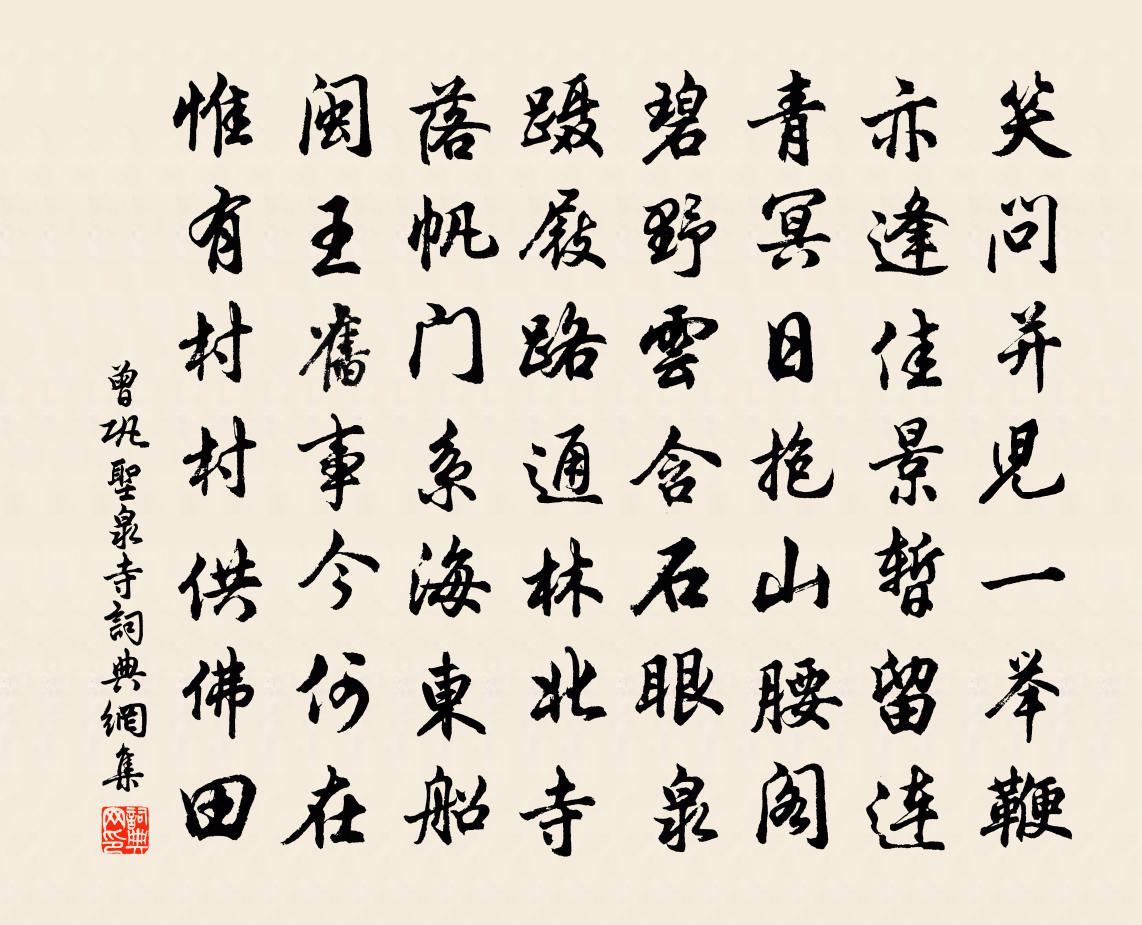 笑问并见一举鞭
亦逢佳景暂留连
青冥日抱山腰阁
碧野雲含石眼泉
蹑屐路通林北寺
落帆门系海東船
闽王舊事今何在
惟有村村供佛田
曾巩聖泉寺詞典網集
詞典网印